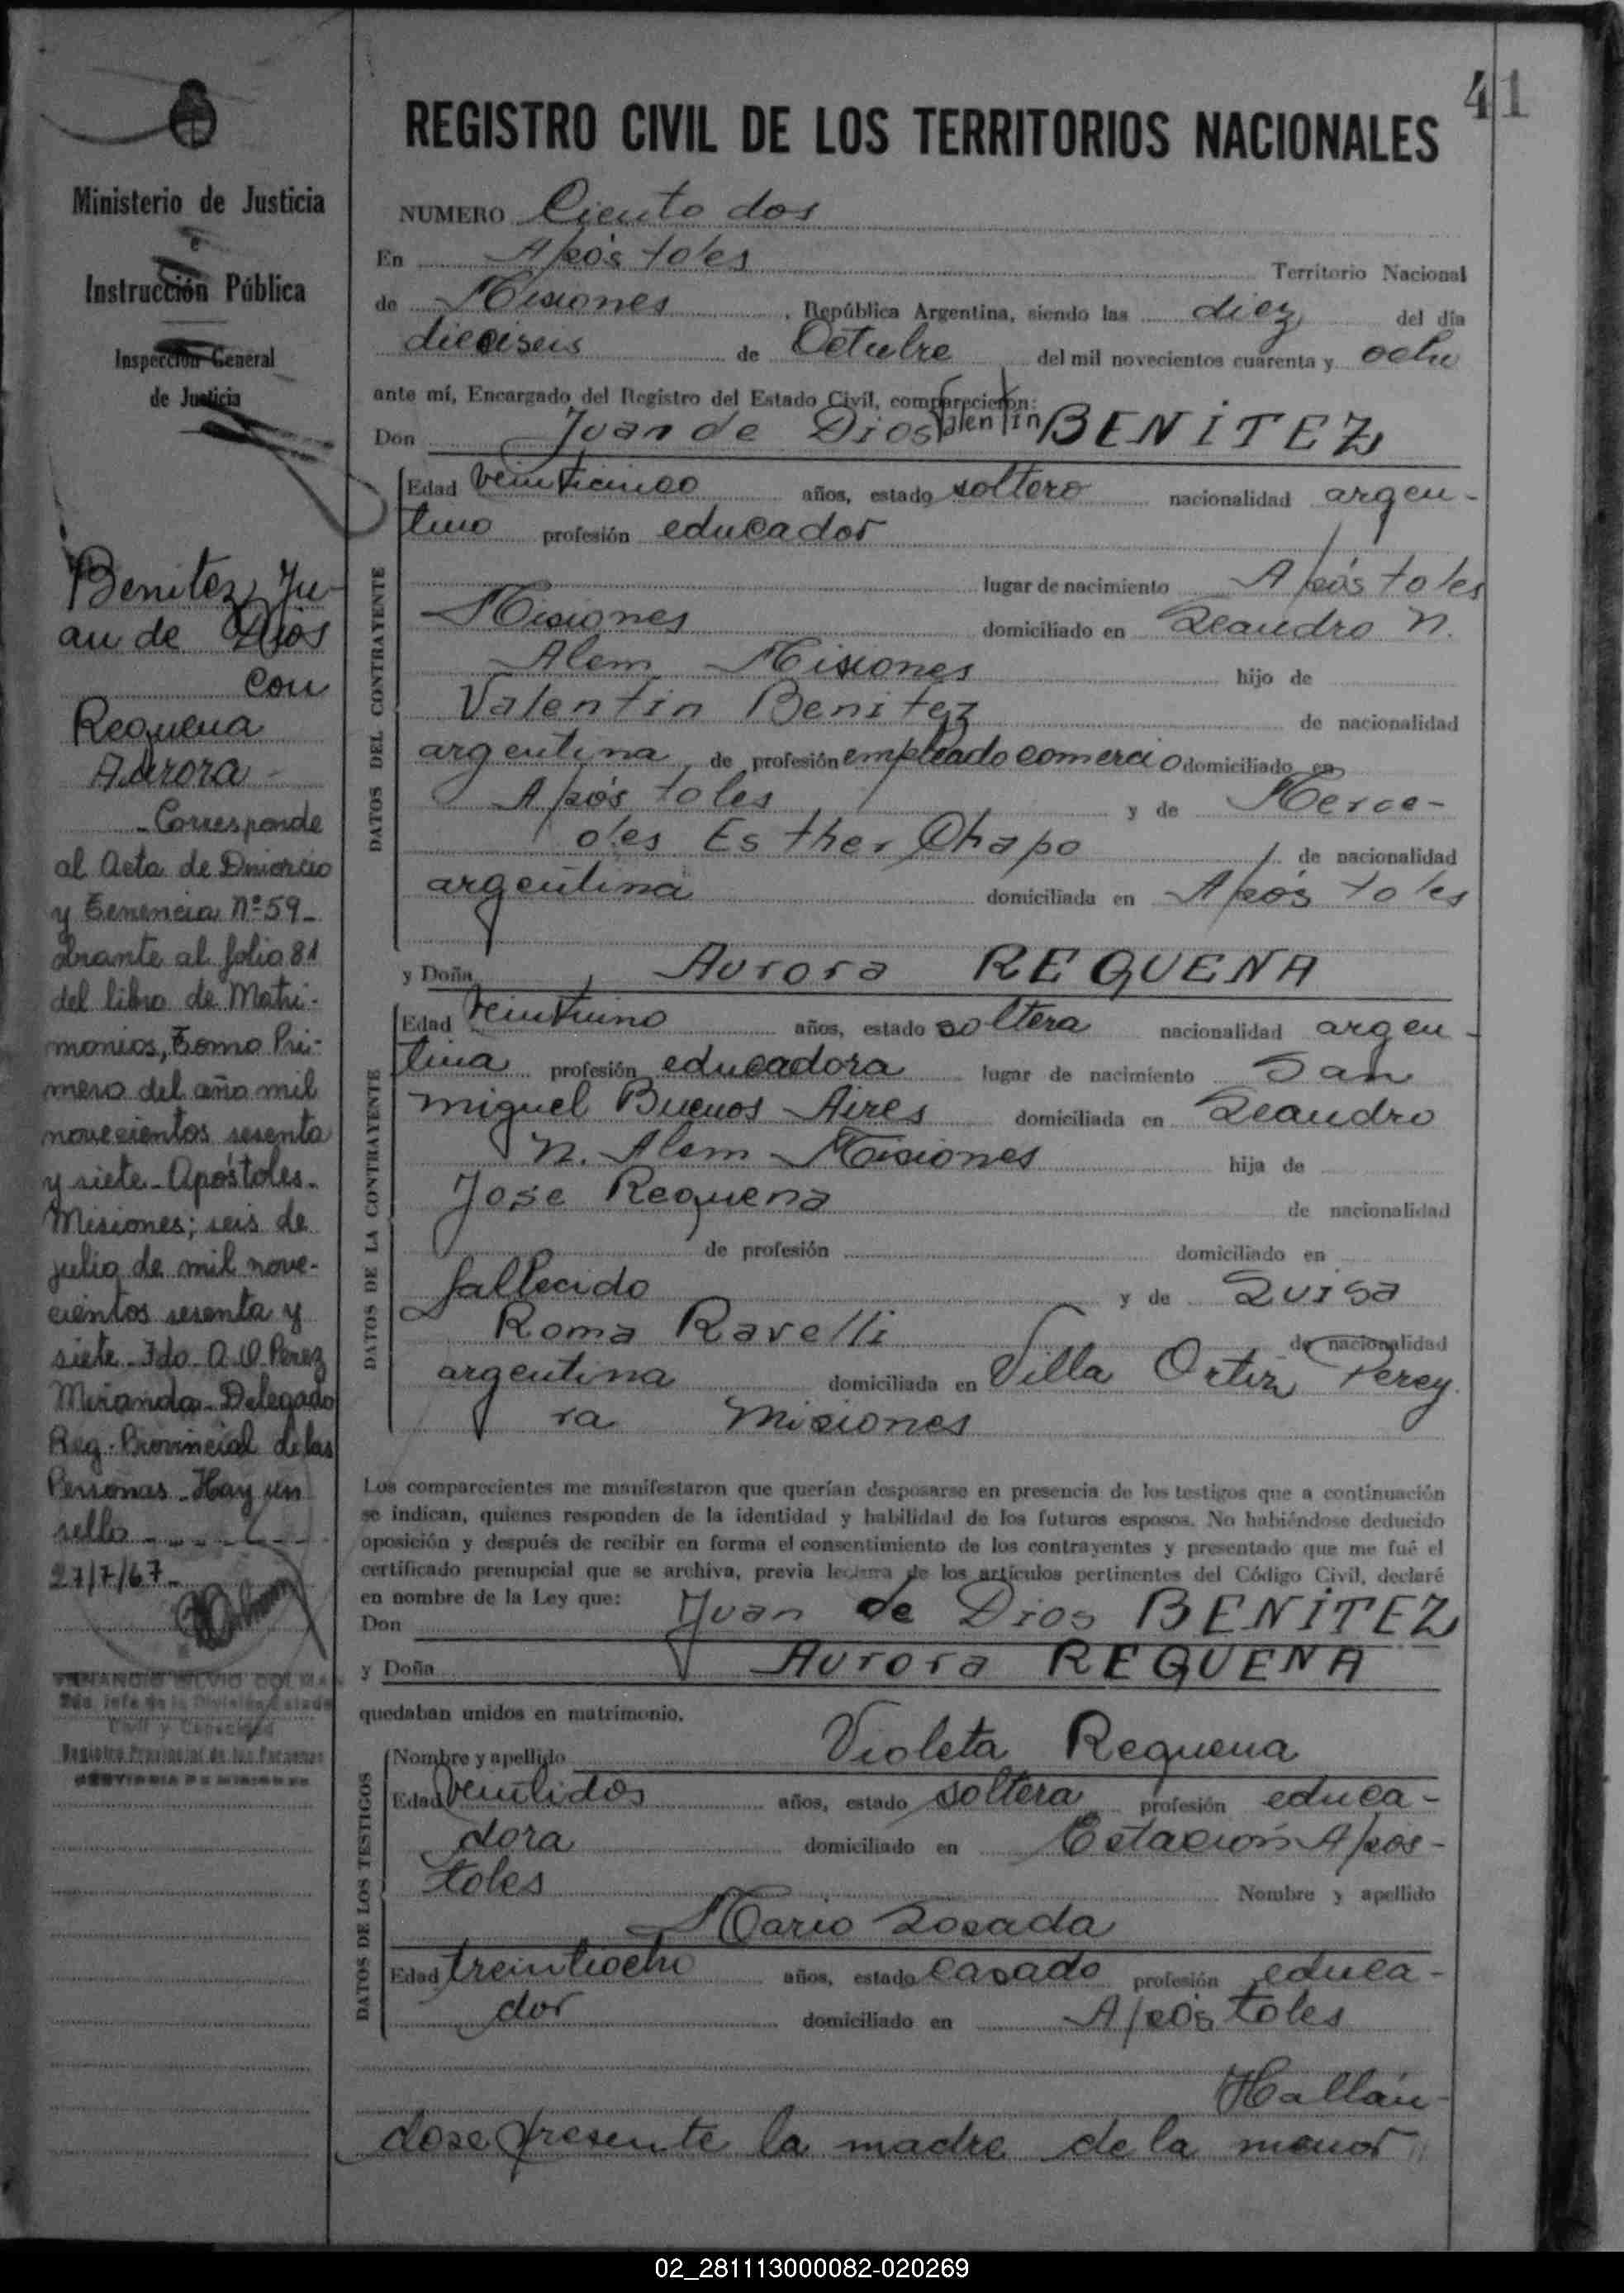 41
REGISTRO CIVIL DE LOS TERRITORIOS NACIONALES
Ministerio de Justicia
e
Instrucción Pública
Inspección General
de Justicia
Benitez, Ju-
an de Dios
con
Requena
Aurora
Corresponde
al Acta de Divorcio
y Tenencia Nº 59-
obrante al folio 81
del libro de Matri-
monios, Tomo Pri-
mero del año mil
novecientos sesenta
y siete - Apóstoles -
Misiones; seis de
julio de mil nove-
cientos sesenta y
siete - Fdo. A. O. Perez
Miranda - Delegado
Reg. Provincial de las
Personas - Hay un
sello
27/7/67-
SILVIO
2do. Jefe de la División Estado
Civil y Capacidad
Registro Provincial de las Personas
NUMERO Ciento dos
En Apóstoles Territorio Nacional
de Misiones, República Argentina, siendo las diez del día
dieciseis de Octubre del mil novecientos cuarenta y ocho
ante mí, Encargado del Registro del Estado Civil, comparecieron:
Don Juan de Dios Valentin BENITEZ
DATOS DEL CONTRAYENTE
Edad veinticinco años, estado soltero nacionalidad argen-
tino profesión educador
lugar de nacimiento Apóstoles
Misiones domiciliado en Leandro N.
Alem Misiones hijo de
Valentin Benitez de nacionalidad
argentina de profesión empleado comercio domiciliado en
Apóstoles y de Merce-
des Esther Chapo de nacionalidad
argentina domiciliada en Apóstoles
y Doña Aurora REQUENA
DATOS DE LA CONTRAYENTE
Edad veintiuno años, estado soltera nacionalidad argen-
tina profesión educadora lugar de nacimiento San
Miguel Buenos Aires domiciliada en Leandro
N. Alem Misiones hija de
Jose Requena de nacionalidad
de profesión domiciliado en
fallecido y de Luisa
Roma Ravelli de nacionalidad
argentina domiciliada en Villa Ortiz Perey
ra Misiones
Los comparecientes me manifestaron que querían desposarse en presencia de los testigos que a continuación
se indican, quienes responden de la identidad y habilidad de los futuros esposos. No habiéndose deducido
oposición y después de recibir en forma el consentimiento de los contrayentes y presentado que me fué el
certificado prenupcial que se archiva, previa lectura de los artículos pertinentes del Código Civil, declaré
en nombre de la Ley que:
Don Juan de Dios BENITEZ
y Doña Aurora REQUENA
quedaban unidos en matrimonio.
DATOS DE LOS TESTIGOS
Nombre y apellido Violeta Requena
Edad veintidos años, estado soltera profesión educa-
dora domiciliado en Estación Apos-
toles Nombre y apellido
Mario Losada
Edad treintiocho años, estado casado profesión educa-
dor domiciliado en Apóstoles
Hallán-
dose presente la madre de la menor
02_281113000082-020269